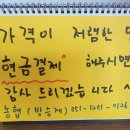 가격이 저렴한 만
현금결제 해주시면
감사 드리겠습니다
농협 (방승계) 351-1251-0126